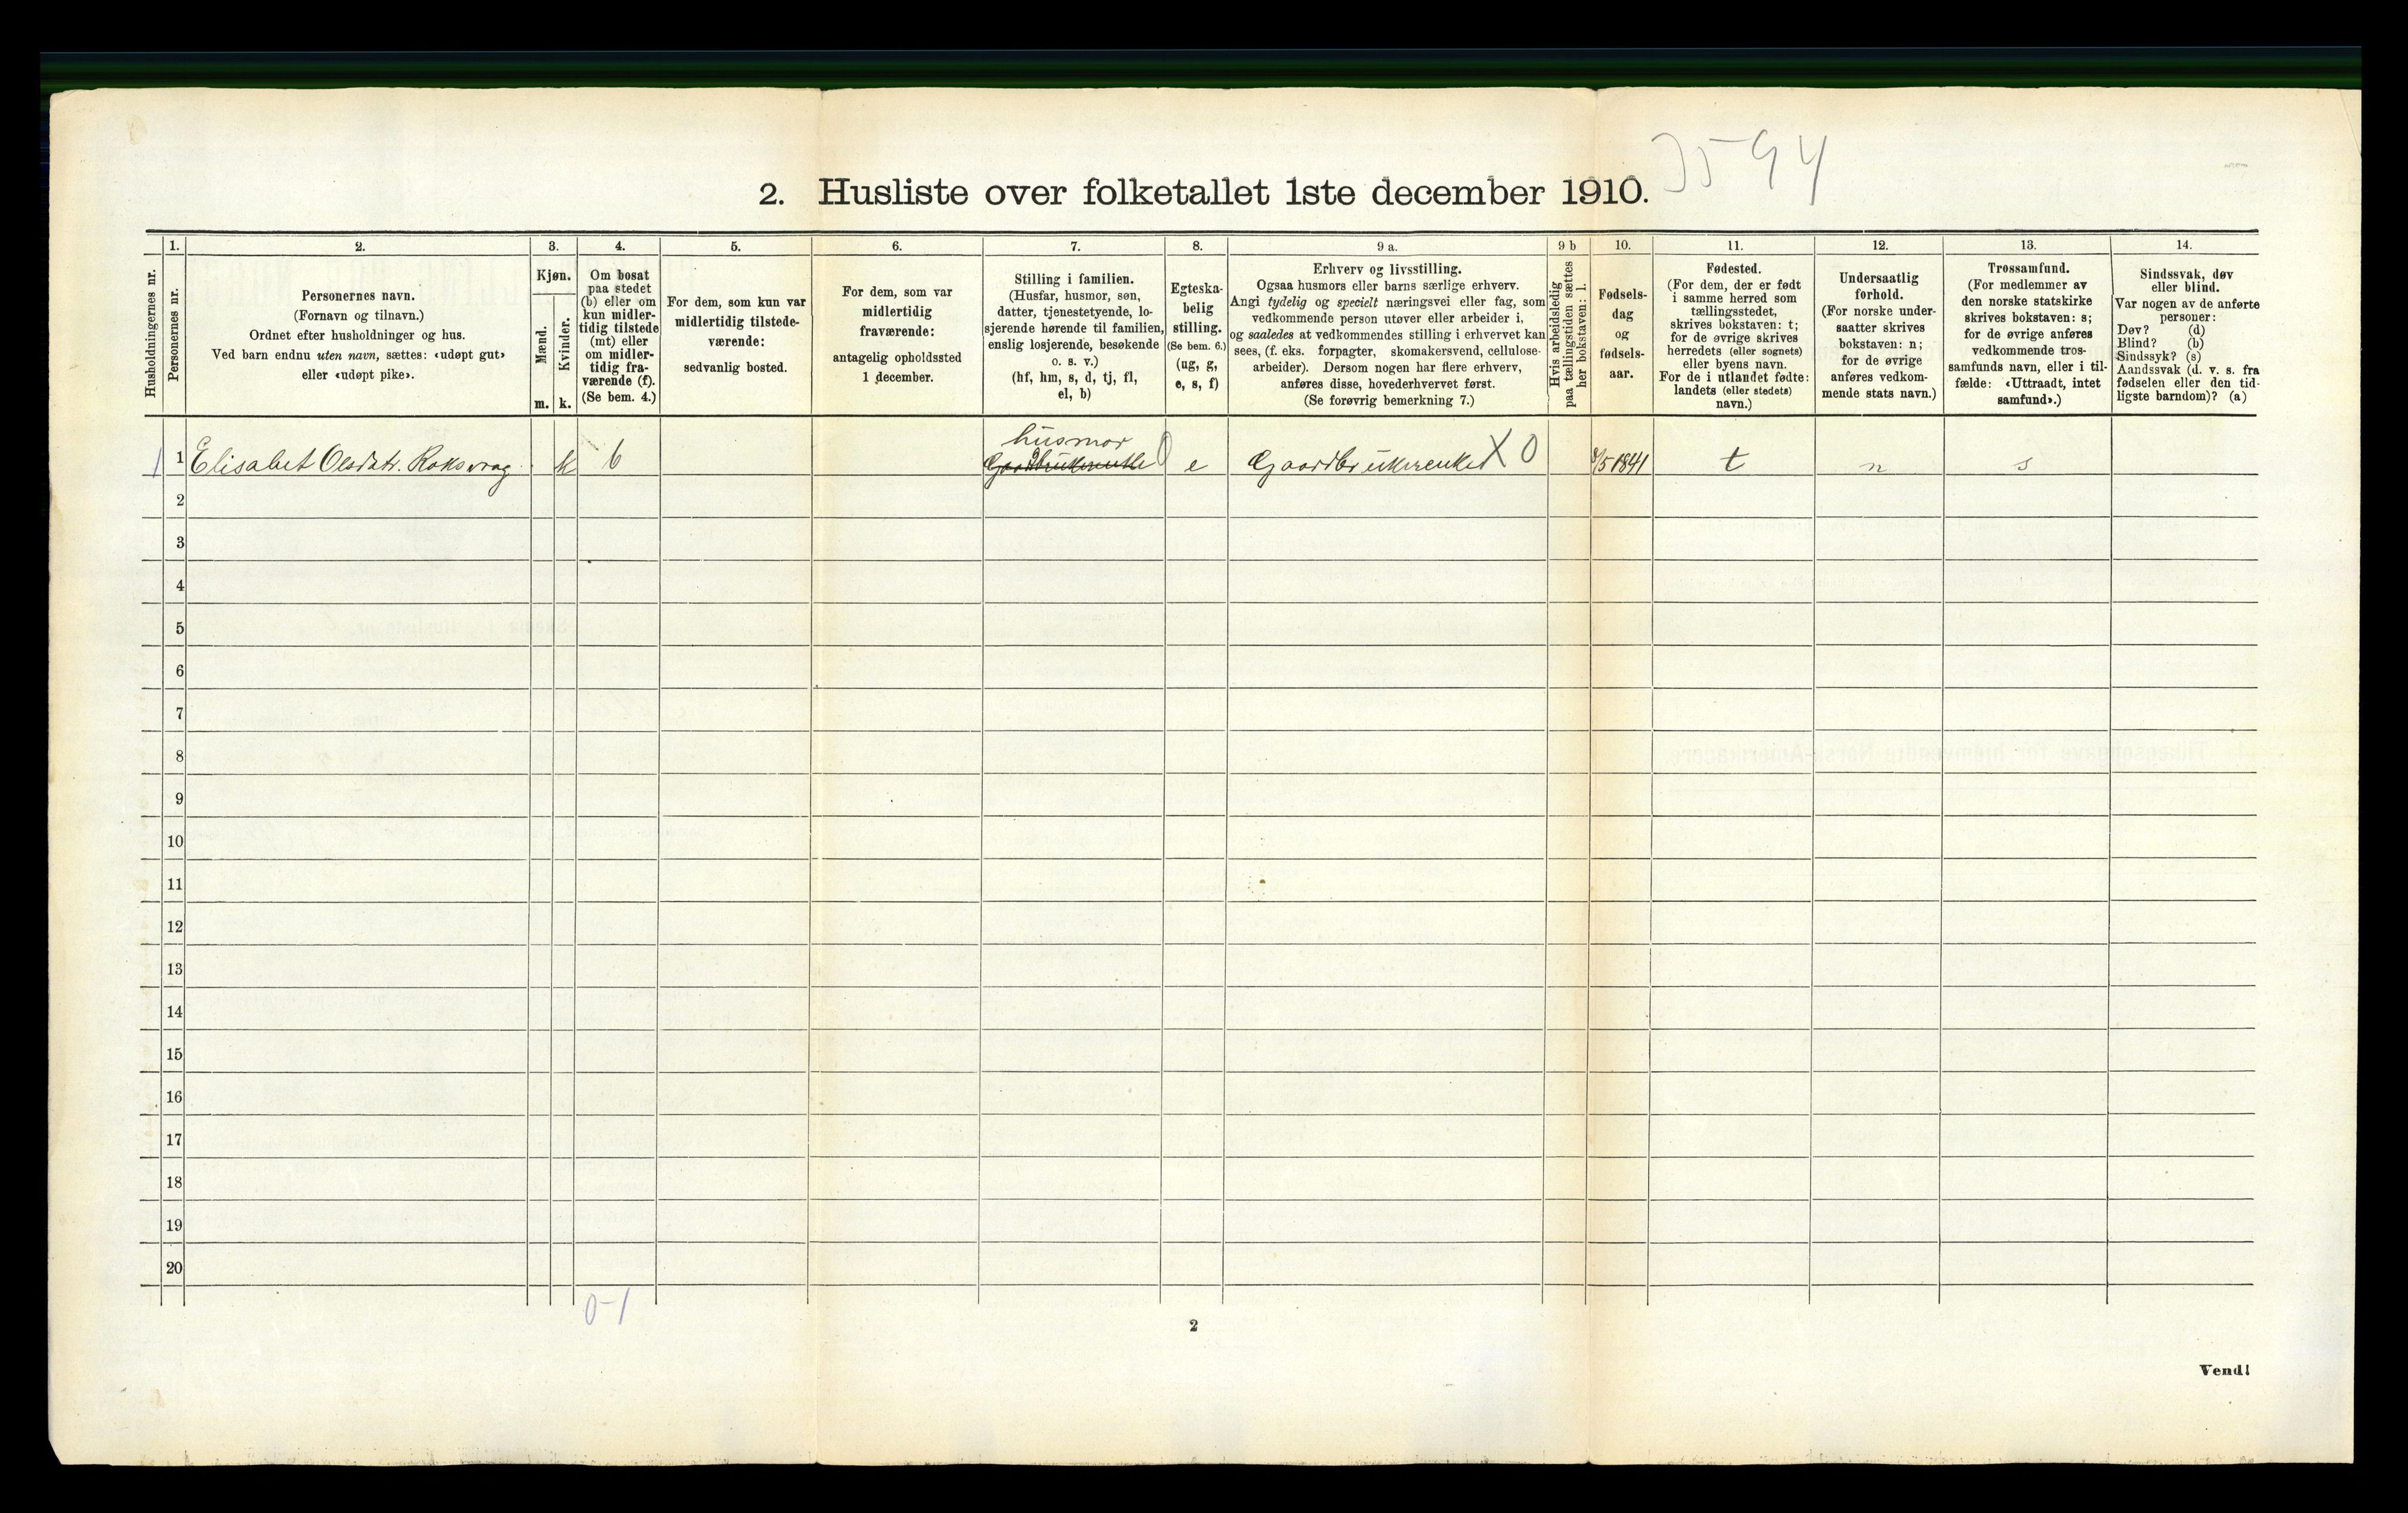 3594
2. Husliste over folketallet 1ste december 1910.
Husholdningernes nr.
1.
Personernes nr.
2.
Personernes navn.
(Fornavn og tilnavn.)
Ordnet efter husholdninger og hus.
Ved barn endnu uten navn, sættes: «udøpt gut»
eller «udøpt pike».
3.
Kjøn.
Mænd.
Kvinder.
m.
k.
4.
Om bosat
paa stedet
(b) eller om
kun midler-
tidig tilstede
(mt) eller
om midler-
tidig fra-
værende (f).
(Se bem. 4.)
5.
For dem, som kun var
midlertidig tilstede-
værende:
sedvanlig bosted.
6.
For dem, som var
midlertidig
fraværende:
antagelig opholdssted
1 december.
7.
Stilling i familien.
(Husfar, husmor, søn,
datter, tjenestetyende, lo-
sjerende hørende til familien,
enslig losjerende, besøkende
o. s. v.)
(hf, hm, s, d, tj, fl,
el, b)
8.
Egteska-
belig
stilling.
(Se bem. 6.)
(ug, g,
e, s, f)
9 a.
Erhverv og livsstilling.
Ogsaa husmors eller barns særlige erhverv.
Angi tydelig og specielt næringsvei eller fag, som
vedkommende person utøver eller arbeider i,
og saaledes at vedkommendes stilling i erhvervet kan
sees, (f. eks. forpagter, skomakersvend, cellulose-
arbeider). Dersom nogen har flere erhverv,
anføres disse, hovederhvervet først.
(Se forøvrig bemerkning 7.)
9 b
Hvis arbeidsledig
paa tællingstiden sættes
her bokstaven: l.
10.
Fødsels-
dag
og
fødsels-
aar.
11.
Fødested.
(For dem, der er født
i samme herred som
tællingsstedet,
skrives bokstaven: t;
for de øvrige skrives
herredets (eller sognets)
eller byens navn.
For de i utlandet fødte:
landets (eller stedets)
navn.)
12.
Undersaatlig
forhold.
(For norske under-
saatter skrives
bokstaven: n;
for de øvrige
anføres vedkom-
mende stats navn.)
13.
Trossamfund.
(For medlemmer av
den norske statskirke
skrives bokstaven: s;
for de øvrige anføres
vedkommende tros-
samfunds navn, eller i til-
fælde: «Uttraadt, intet
samfund».)
14.
Sindssvak, døv
eller blind.
Var nogen av de anførte
personer:
Døv? (d)
Blind? (b)
Sindssyk? (s)
Aandssvak (d. v. s. fra
fødselen eller den tid-
ligste barndom)? (a)
husmor
1 1 Elisabet Olsdatr. Roksvrag k b Gaardbrukerenke 0 e Gaardbrukerenke X 0 8/5 1841 t n s
2
3
4
5
6
7
8
9
10
11
12
13
14
15
16
17
18
19
20
0-1
2
Vend!